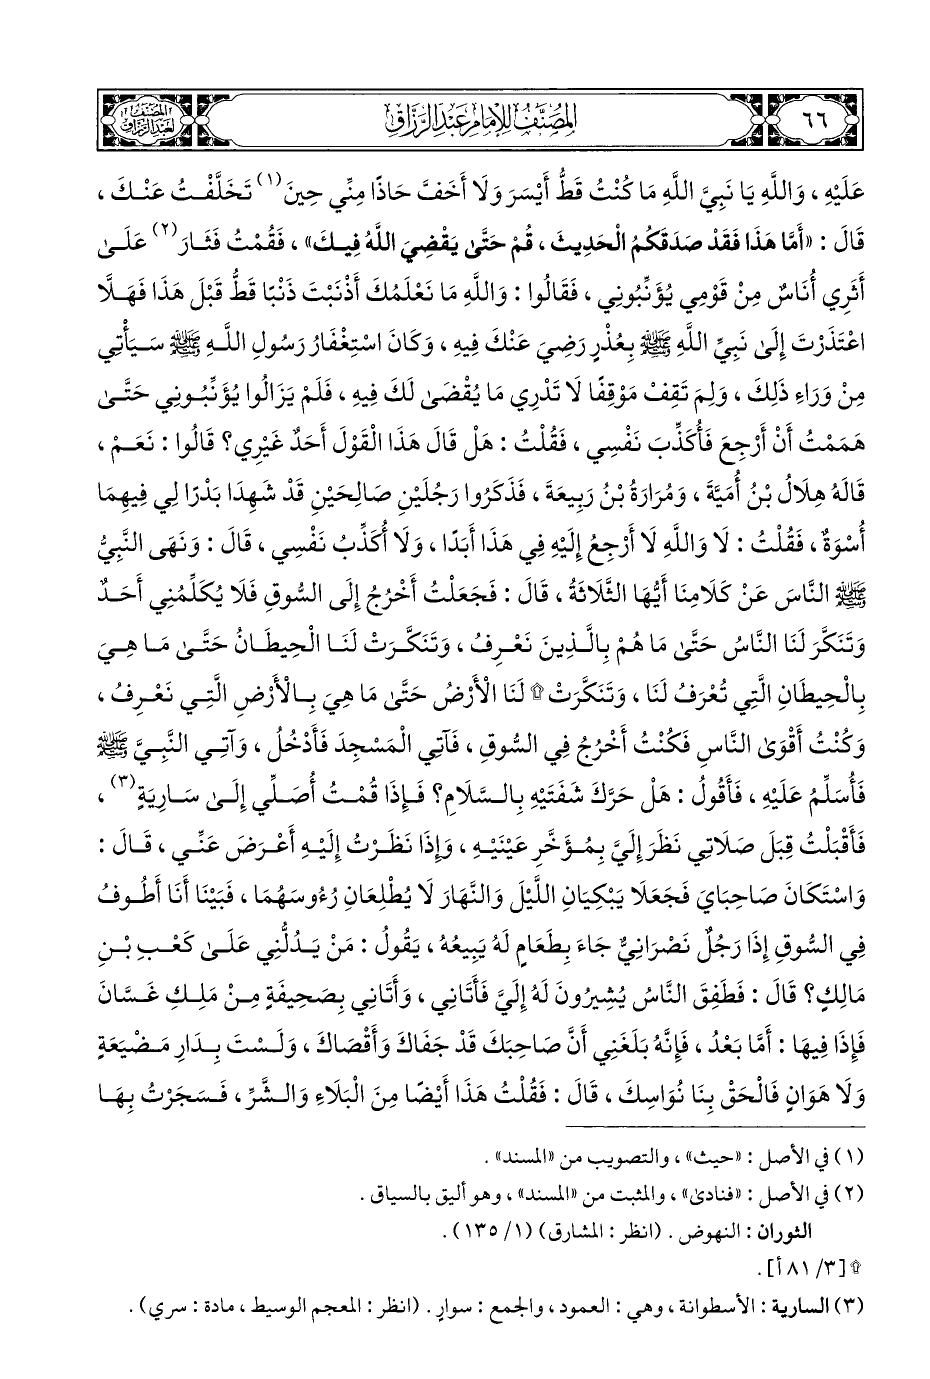 ٦٦
المصنف للإمام عبد الرزاق
المصنف
لعبد الرزاق
عَلَيْهِ ، وَاللَّهِ يَا نَبِيَّ اللَّهِ مَا كُنْتُ قَطُّ أَيْسَرَ وَلَا أَخَفَّ حَاذًا مِنِّي حِينَ(١) تَخَلَّفْتُ عَنْكَ ،
قَالَ : «أَمَّا هَذَا فَقَدْ صَدَقَكُمُ الْحَدِيثَ ، قُمْ حَتَّى يَقْضِيَ اللَّهُ فِيكَ» ، فَقُمْتُ فَثَارَ(٢) عَلَى
أَثَرِي أُنَاسٌ مِنْ قَوْمِي يُؤَنِّبُونِي ، فَقَالُوا : وَاللَّهِ مَا نَعْلَمُكَ أَذْنَبْتَ ذَنْبًا قَطُّ قَبْلَ هَذَا فَهَلَّا
اعْتَذَرْتَ إِلَى نَبِيِّ اللَّهِ ﷺ بِعُذْرٍ رَضِيَ عَنْكَ فِيهِ ، وَكَانَ اسْتِغْفَارُ رَسُولِ اللَّهِ ﷺ سَيَأْتِي
مِنْ وَرَاءِ ذَلِكَ ، وَلِمَ تَقِفْ مَوْقِفًا لَا تَدْرِي مَا يُقْضَى لَكَ فِيهِ ، فَلَمْ يَزَالُوا يُؤَنِّبُونِي حَتَّى
هَمَمْتُ أَنْ أَرْجِعَ فَأُكَذِّبَ نَفْسِي ، فَقُلْتُ : هَلْ قَالَ هَذَا الْقَوْلَ أَحَدٌ غَيْرِي؟ قَالُوا : نَعَمْ ،
قَالَهُ هِلَالُ بْنُ أُمَيَّةَ ، وَمُرَارَةُ بْنُ رَبِيعَةَ ، فَذَكَرُوا رَجُلَيْنِ صَالِحَيْنِ قَدْ شَهِدَا بَدْرًا لِي فِيهِمَا
أُسْوَةٌ ، فَقُلْتُ : لَا وَاللَّهِ لَا أَرْجِعُ إِلَيْهِ فِي هَذَا أَبَدًا ، وَلَا أُكَذِّبُ نَفْسِي ، قَالَ : وَنَهَى النَّبِيُّ
ﷺ النَّاسَ عَنْ كَلَامِنَا أَيُّهَا الثَّلَاثَةُ ، قَالَ : فَجَعَلْتُ أَخْرُجُ إِلَى السُّوقِ فَلَا يُكَلِّمُنِي أَحَدٌ
وَتَنَكَّرَ لَنَا النَّاسُ حَتَّى مَا هُمْ بِالَّذِينَ نَعْرِفُ ، وَتَنَكَّرَتْ لَنَا الْحِيطَانُ حَتَّى مَا هِيَ
بِالْحِيطَانِ الَّتِي تُعْرَفُ لَنَا ، وَتَنَكَّرَتْ ۩ لَنَا الْأَرْضُ حَتَّى مَا هِيَ بِالْأَرْضِ الَّتِي نَعْرِفُ ،
وَكُنْتُ أَقْوَى النَّاسِ فَكُنْتُ أَخْرُجُ فِي السُّوقِ ، فَآتِي الْمَسْجِدَ فَأَدْخُلُ ، وَآتِي النَّبِيَّ ﷺ
فَأُسَلِّمُ عَلَيْهِ ، فَأَقُولُ : هَلْ حَرَّكَ شَفَتَيْهِ بِالسَّلَامِ؟ فَإِذَا قُمْتُ أُصَلِّي إِلَى سَارِيَةٍ(٣) ،
فَأَقْبَلْتُ قِبَلَ صَلَاتِي نَظَرَ إِلَيَّ بِمُؤَخَّرِ عَيْنَيْهِ ، وَإِذَا نَظَرْتُ إِلَيْهِ أَعْرَضَ عَنِّي ، قَالَ :
وَاسْتَكَانَ صَاحِبَايَ فَجَعَلَا يَبْكِيَانِ اللَّيْلَ وَالنَّهَارَ لَا يُطْلِعَانِ رُءُوسَهُمَا ، فَبَيْنَا أَنَا أَطُوفُ
فِي السُّوقِ إِذَا رَجُلٌ نَصْرَانِيٌّ جَاءَ بِطَعَامٍ لَهُ يَبِيعُهُ ، يَقُولُ : مَنْ يَدُلُّنِي عَلَى كَعْبِ بْنِ
مَالِكٍ؟ قَالَ : فَطَفِقَ النَّاسُ يُشِيرُونَ لَهُ إِلَيَّ فَأَتَانِي ، وَأَتَانِي بِصَحِيفَةٍ مِنْ مَلِكِ غَسَّانَ
فَإِذَا فِيهَا : أَمَّا بَعْدُ ، فَإِنَّهُ بَلَغَنِي أَنَّ صَاحِبَكَ قَدْ جَفَاكَ وَأَقْصَاكَ ، وَلَسْتَ بِدَارِ مَضْيَعَةٍ
وَلَا هَوَانٍ فَالْحَقْ بِنَا نُوَاسِكَ ، قَالَ : فَقُلْتُ هَذَا أَيْضًا مِنَ الْبَلَاءِ وَالشَّرِّ ، فَسَجَرْتُ بِهَا
(١) في الأصل : «حيث» ، والتصويب من «المسند» .
(٢) في الأصل : «فنادى» ، والمثبت من «المسند» ، وهو أليق بالسياق .
الثوران : النهوض . (انظر : المشارق) (١/ ١٣٥) .
۩ [٣/ ٨١ أ] .
(٣) السارية : الأسطوانة ، وهي : العمود ، والجمع : سوارٍ . (انظر : المعجم الوسيط ، مادة : سري) .